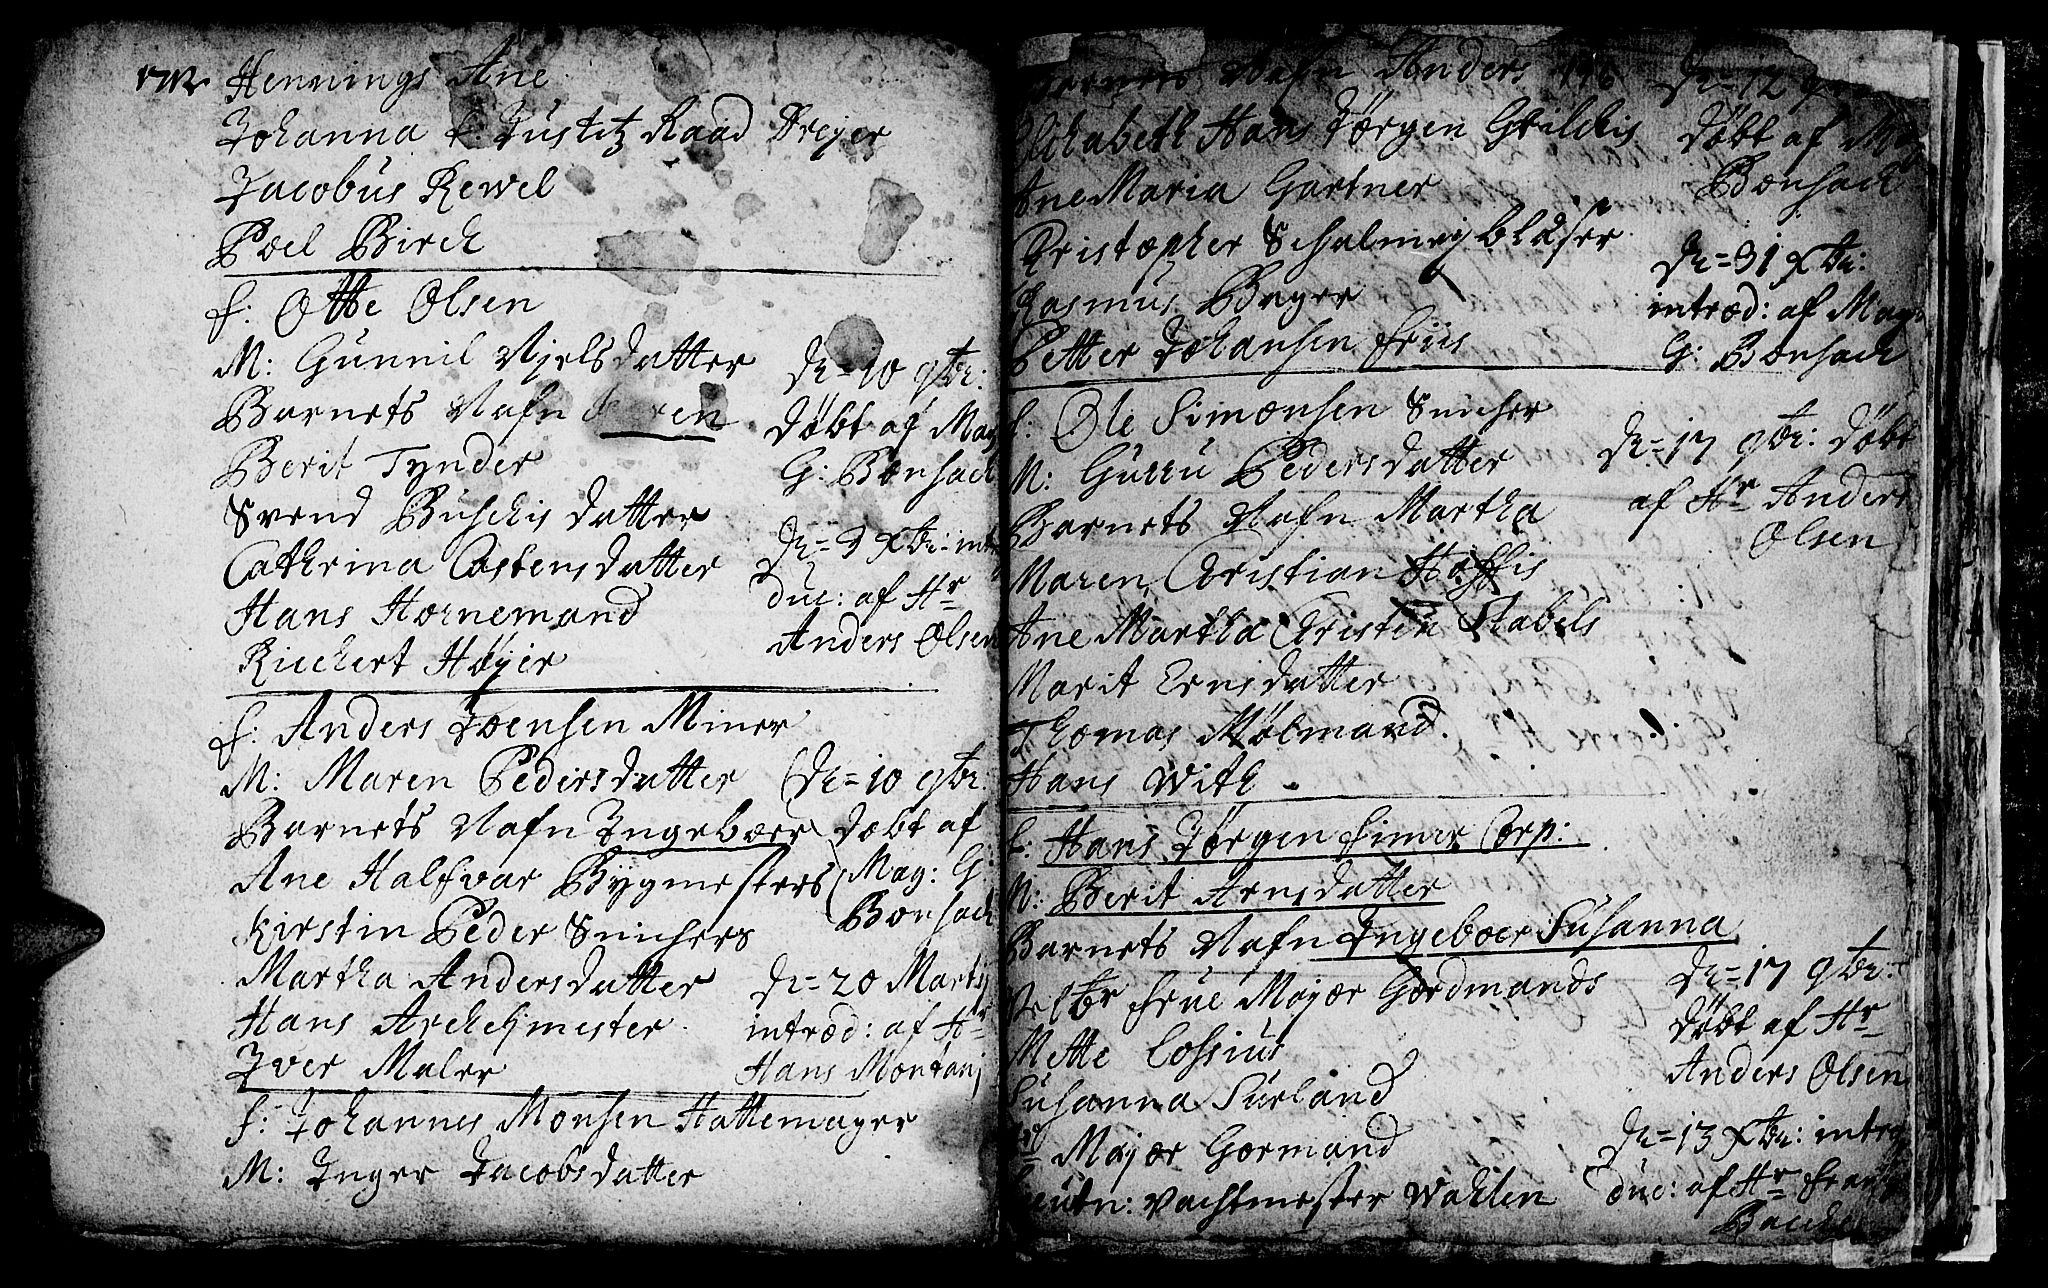 1712. Hennings Ane
Johanna f. Justitz Raad Dreyer
Jacobus Rewel
Poel Birch
f: Otte Olsen
M: Gunnil Njelsdatter
Barnets Nafn
Berit Tynder
Svend Buschis datter
Cathrina Castensdatter
Hans Hornemand
Ricchert Høyer
D: = 10 9br:
døbt af Mag
G: Bonsach
D: = 9 Xbr: intro
duc: af Hr
Anders Olsen
f: Anders Joensen Miner
M: Maren Pedersdatter
Barnets Nafn Ingeboer
Ane Halfvar Bygmesters
Kirstin Peder Snichers
Martha Andersdatter
Hans Archelimester
Iver Maler
D: = 10 9br:
døbt af
Mag: G:
Bonsach
D: = 20 Martij
introd: af Hr
Hans Montanj
f: Johannes Monsen Hattemager
M: Inger Jacobsdatter
Barnets Nafn Anders 146
Elisabeth Hans Jørgen Gtilchis
Ane Maria Gartner
Kristopher Schalmeyblåser
Rasmus Bager
Petter Johansen Friis
D: = 12
døbt af Mag
Bonsach
D: = 31 Xbr:
introd: af Mag
G: Bonsach
f: Ole Simonsen Snicher
M: Gurru Pedersdatter
Barnets Nafn Martha
Maren Christian Hoffis
Ane Martha Christen Stabels
Marit Ernsdatter
Thomas Mølmand.
Hans With
D: = 17 9br: døbt
af Hr Anders
Olsen
f: Hans Jørgen Simer Corp:
M: Berit Arnsdatter
Barnets Nafn Ingeboer Susanna
Frue Major Gordmands
Mette Cossius
Susanna Surland
Hr Major Gormand
Leutn: Vachtmester Wahlen
D: = 17 9br:
døbt af Hr
Anders Olsen
D: = 13 Xbr: intro
duc: af Hr Frantz